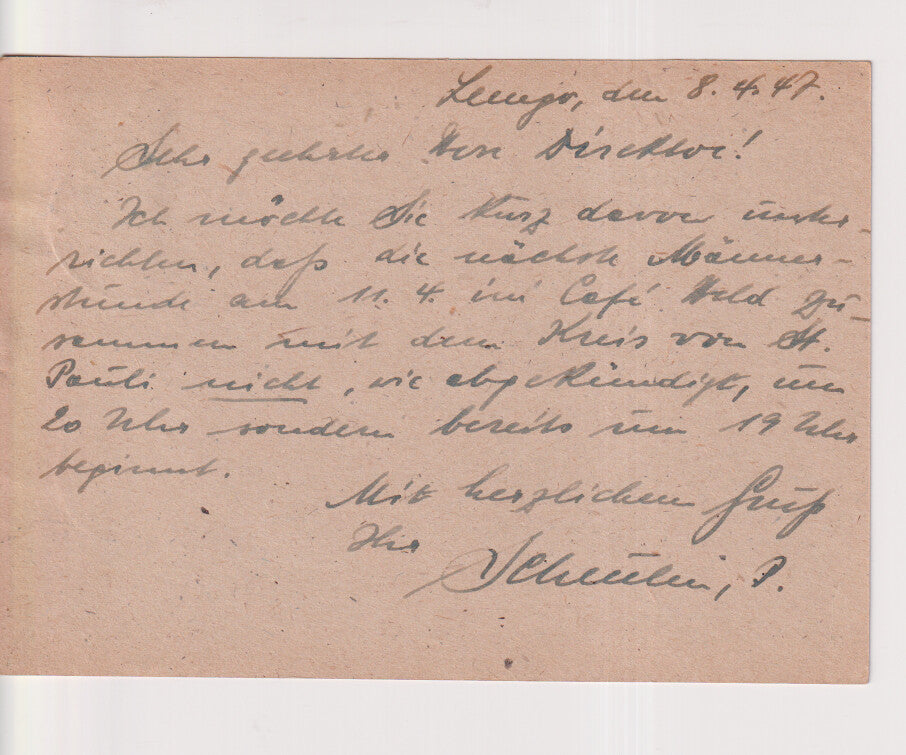 Lemgo, den 8. 4. 47.
Sehr geehrter Herr Direktor!
Ich möchte Sie kurz davon unter-
richten, daß die nächste Männer-
stunde am 11. 4. im Café Held zu-
sammen mit dem Kreis von St.
Pauli nicht, wie abgekündigt, um
20 Uhr sondern bereits um 19 Uhr
beginnt.
Mit herzlichem Gruß
Ihr
P.